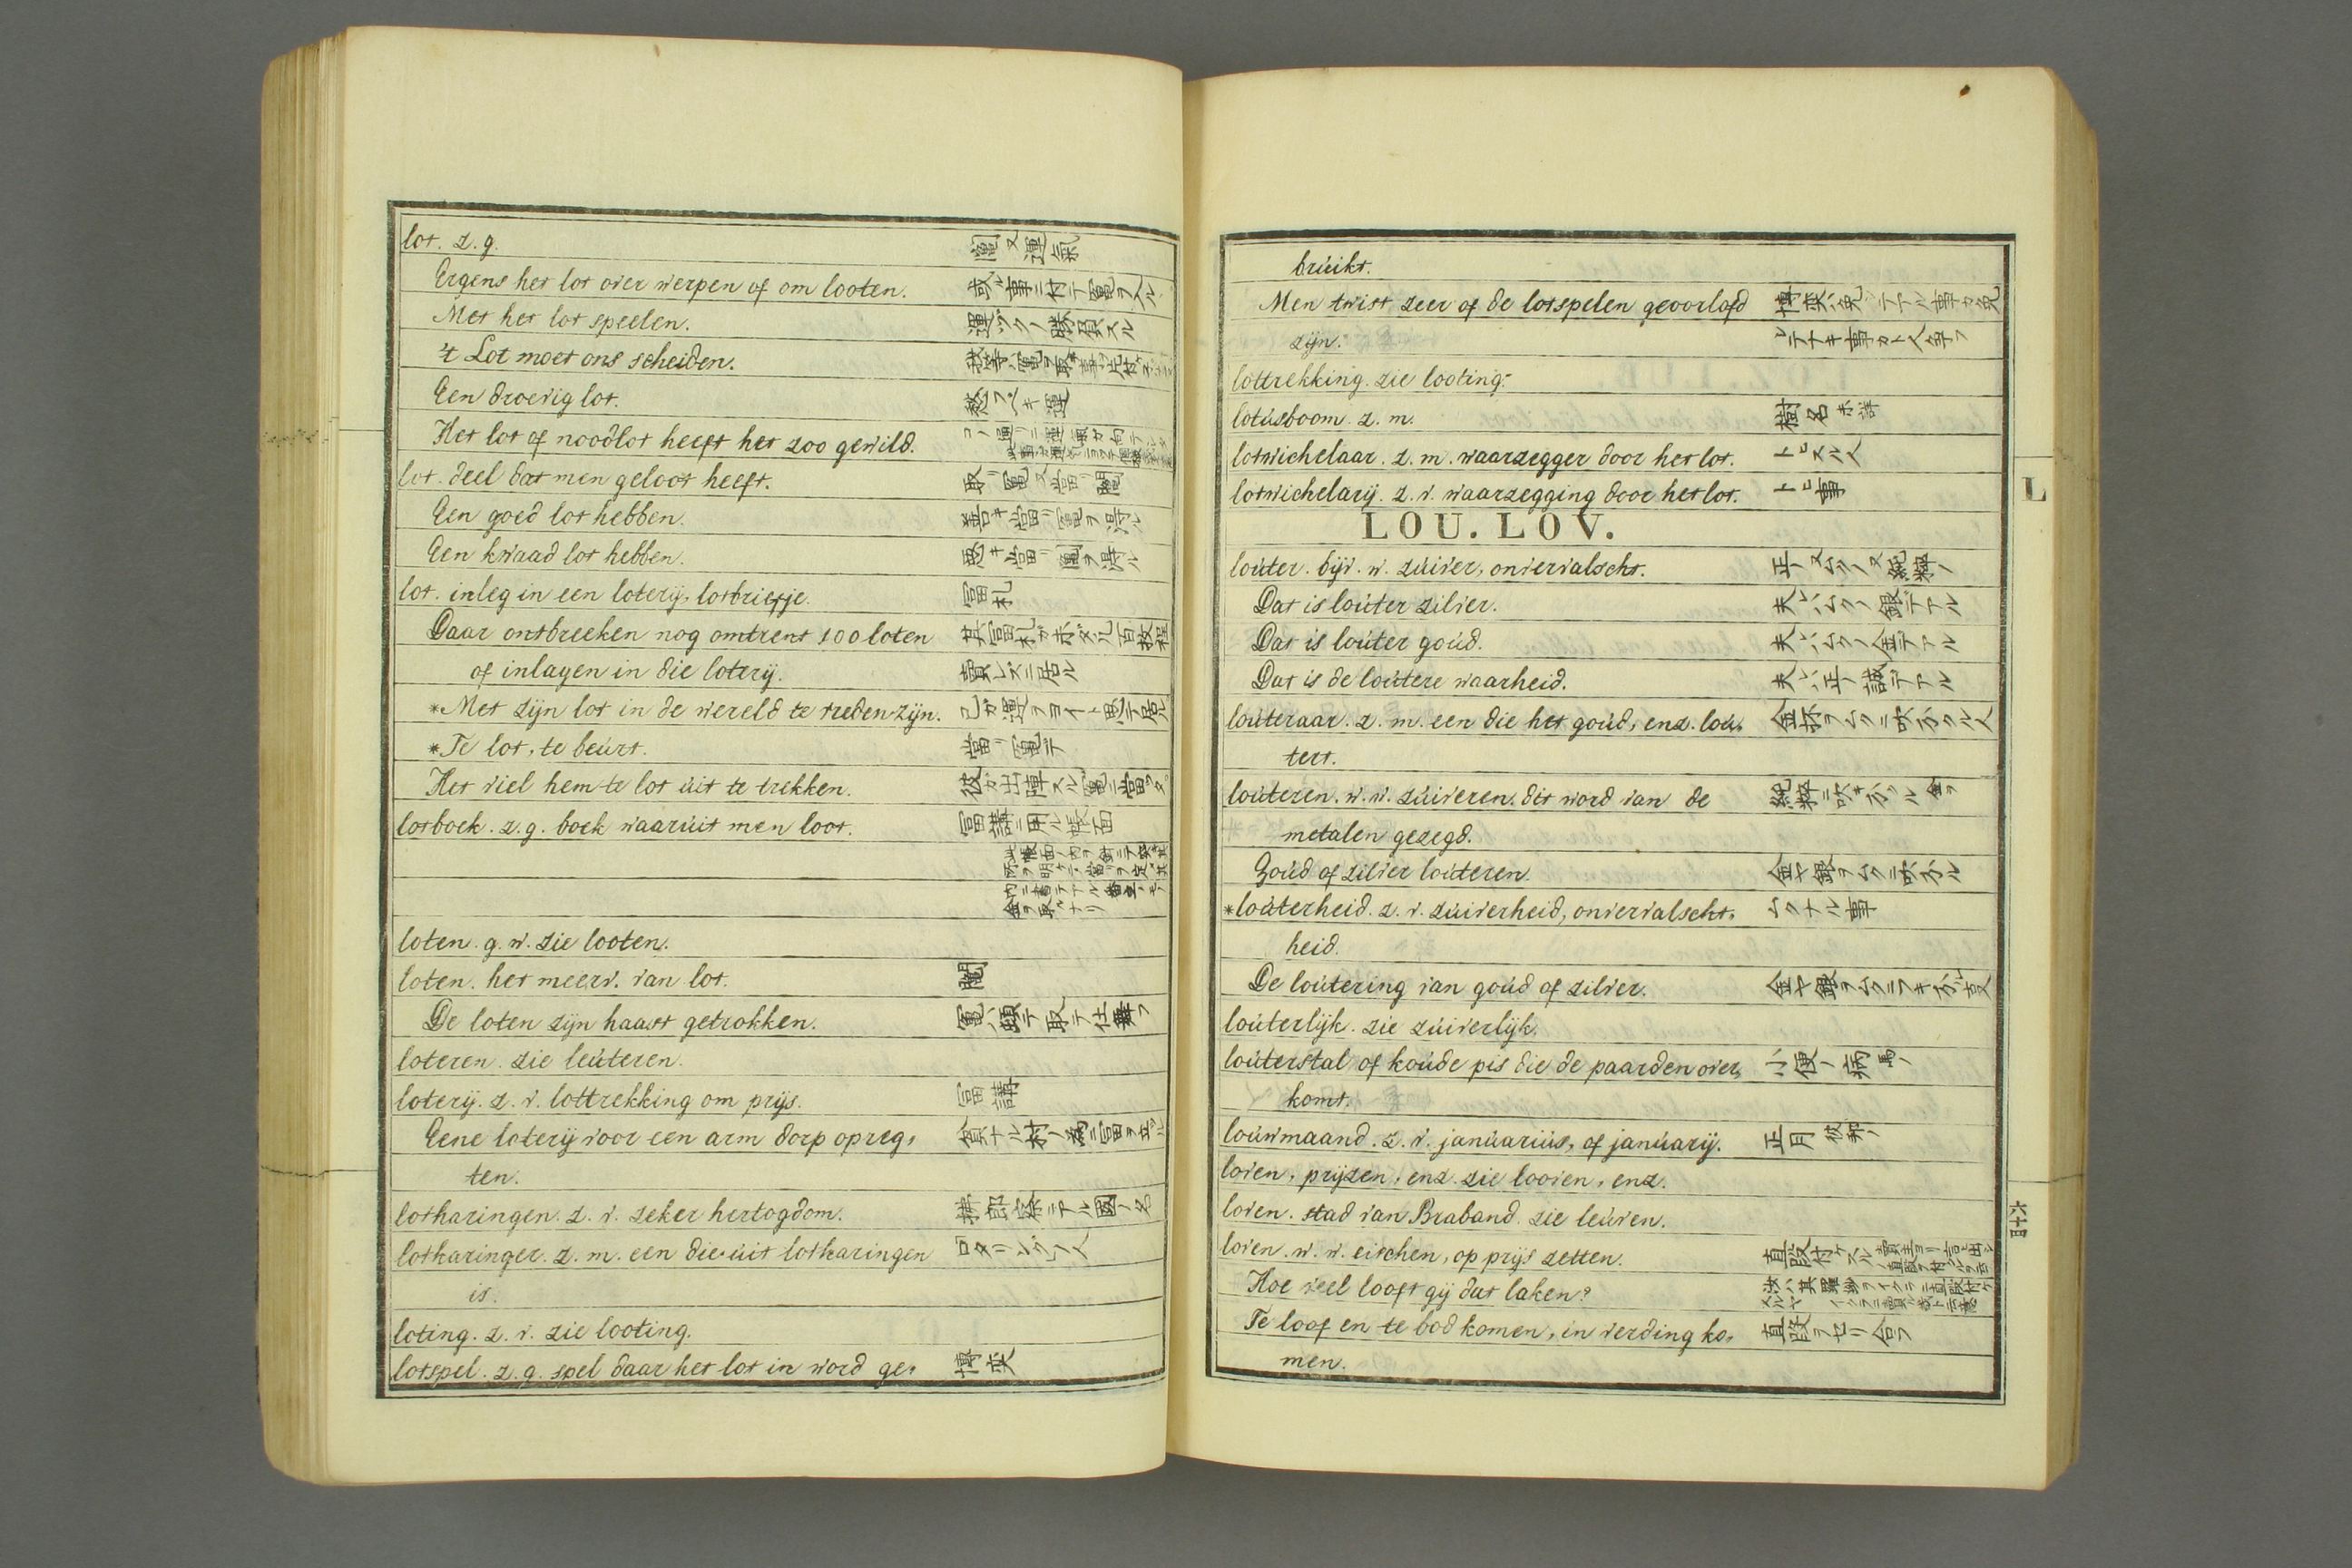 lot. z. g. 鬮又運氣
Ergens het lot over werpen of om looten. 或ル事ニ付テ鬮ヲ入ル
Met het lot speelen. 運ヅクノ勝負スル
't Lot moet ons scheiden.
Een droevig lot. 愁フベキ運
Het lot of noodlot heeft het zoo gewild.
lot. deel dat men geloot heeft. 取リ鬮又當リ鬮
Een goed lot hebben. 善キ當リ鬮ヲ得ル
Een kwaad lot hebben. 悪キ當リ鬮ヲ得ル
lot. inleg in een loterij, lotbriefje. 富札
Daar ontbreeken nog omtrent 100 loten 其富札ガまだ百枚程
of inlagen in die loterij. 賣レズニ居ル
*Met zijn lot in de wereld te vreden zijn. 己ガ運ヲヨイト思テ居ル
*Te lot, te beurt. 當リ鬮デ
Het viel hem te lot uit te trekken. 彼ガ出陣スル鬮ニ當ツタ
lotboek. z. g. boek waaruit men loot. 富講ニ用ル帳面
loten. g. w. zie looten.
loten. het meerv. van lot. 鬮
De loten zijn haast getrokken. 鬮ハ頓テ取テ仕舞フ
loteren. zie leuteren.
loterij. z. v. lottrekking om prijs. 富講
Eene loterij voor een arm dorp opreg, 貧ナル村ノ為ニ富ヲ立ル
ten.
lotharingen. z. v. zeker hertogdom. 拂郎察ニアル國ノ名
lotharinger. z. m. een die uit lotharingen
is.
loting. z. v. zie looting.
lotspel. z. g. spel daar het lot in word ge, 博奕
bruikt.
Men twist zeer of de lotspelen geoorlofd 博奕ハ免シテアル事カ免
zijn. シテナキ事カト人争フ
lottrekking. zie looting.
lotusboom. z. m. 樹名
lotwichelaar. z. m. waarzegger door het lot. 卜ヒスル人
lotwichelarij. z. v. waarzegging door het lot. 卜ヒ事
L
LOU. LOV.
louter. bijv. w. zuiver, onvervalscht. 正ノ又ムクノ又純粹ノ
Dat is louter zilver. 夫レハムクノ銀デアル
Dat is louter goud. 夫レハムクノ金デアル
Dat is de loutere waarheid. 夫レハ正ノ誠デアル
louteraar. z. m. een die het goud, enz. lou, 金抔ヲムクニ吹分クル人
tert.
louteren. w. w. zuiveren. dit word van de 純粹ニ吹キ分ル金ヲ
metalen gezegd.
Goud of zilver louteren. 金ヤ銀ヲムクニ吹分ル
*louterheid. z. v. zuiverheid, onvervalscht, ムクナル事
heid.
De loutering van goud of zilver. 金ヤ銀ヲムクニフキ分ル事
louterlijk. zie zuiverlijk.
louterstal of koude pis die de paarden over, 小便ノ病 馬ノ
komt.
louwmaand. z. v. januarius, of januarij. 正月 彼邦ノ
loven, prijzen, enz. zie looven, enz.
loven. stad van Braband. zie leuven.
loven. w. w. eischen, op prijs zetten. 直段付ケスル
Hoe veel looft gij dat laken?
Te loof en te bod komen, in verding ko, 直段ヲセリ合フ
men.
六十四